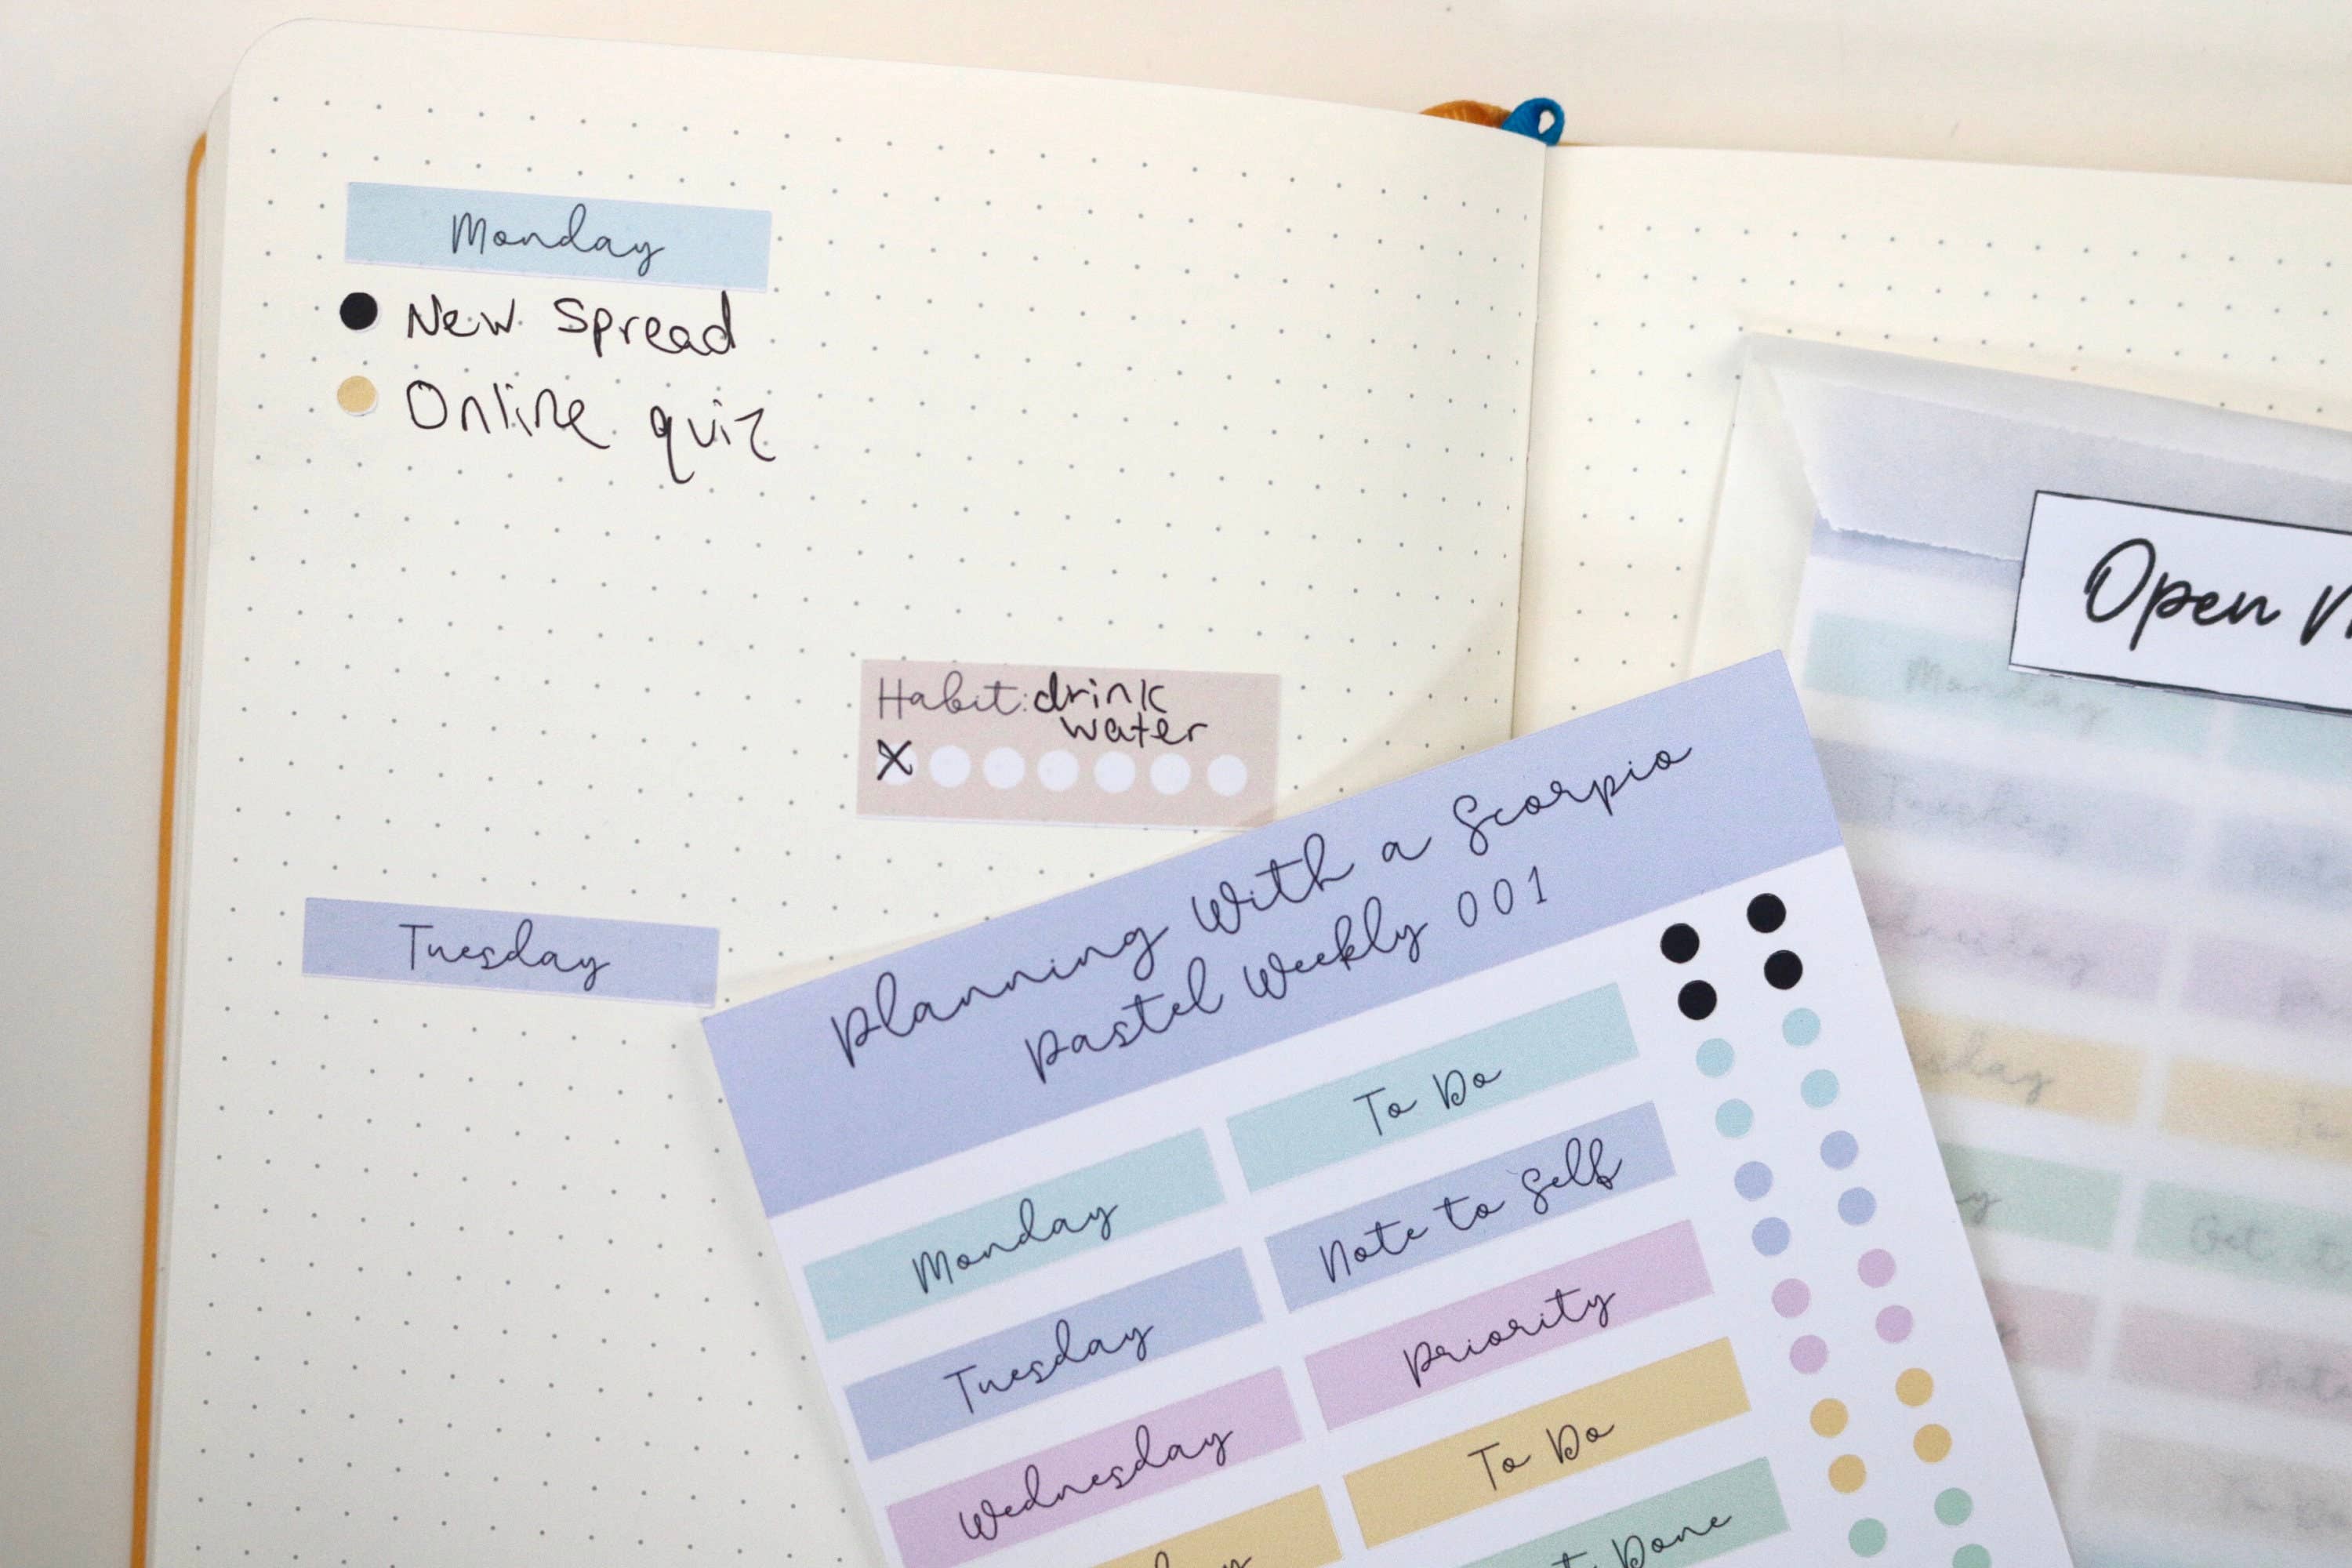 Monday
New Spread
Online quiz
Habit: drink
water
X
Tuesday
Open
Planning With a Scorpio
Pastel Weekly 001
Monday
To Do
Tuesday
Note to Self
Wednesday
Priority
To Do
Done
Monday
Tuesday
Get it